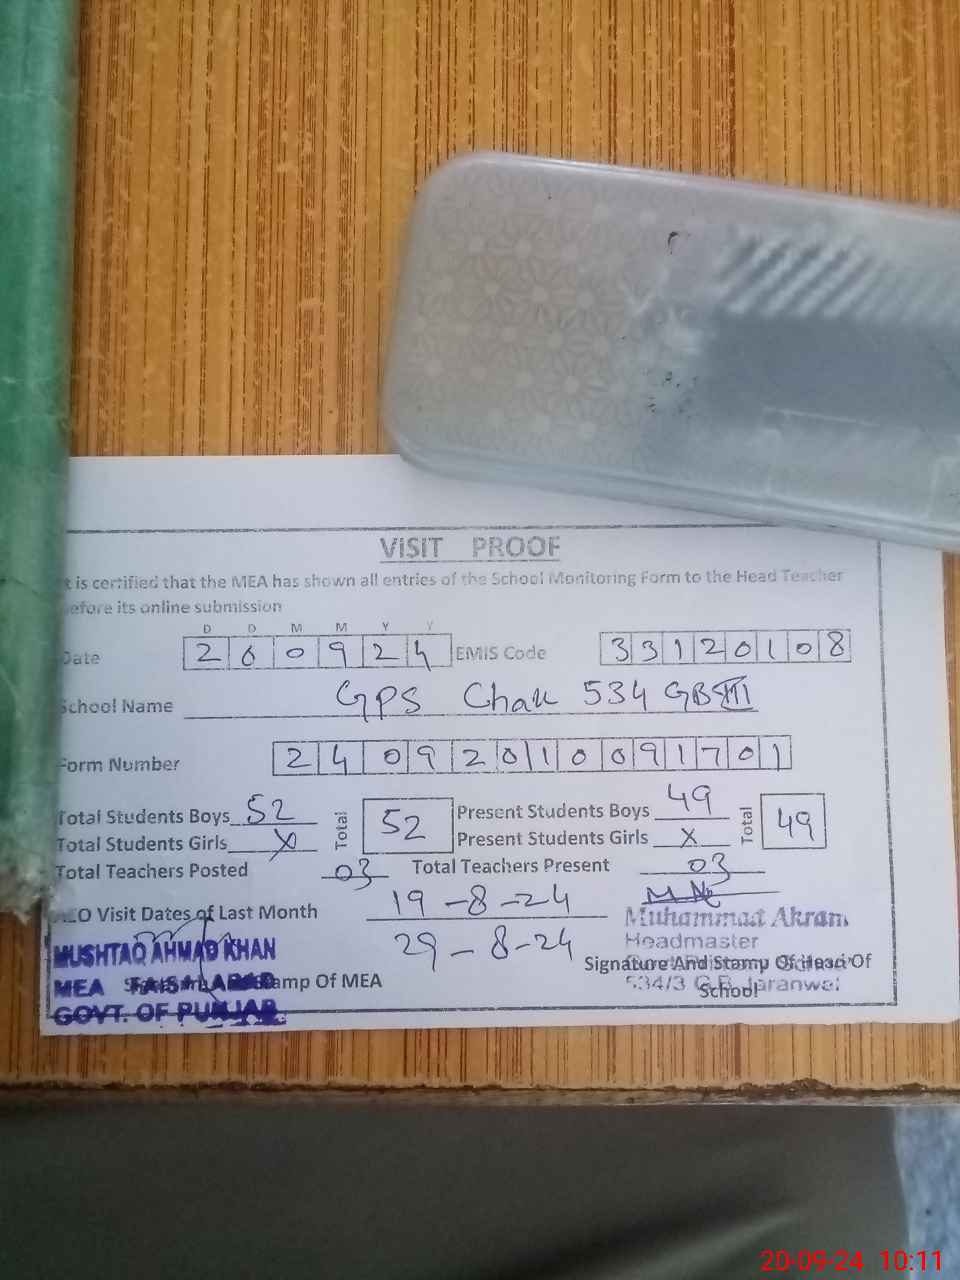 VISIT PROOF
t is certified that the MEA has shown all entries of the School Monitoring Form to the Head Teacher
efore its online submission
D D M M Y Y
Date 2 0 0 9 2 4 EMIS Code 3 3 1 2 0 1 0 8
School Name GPS Chak 534 GB III
Form Number 2 4 0 9 2 0 1 0 0 9 1 7 0 1
Total Students Boys 52 Total 52 Present Students Boys 49 Total 49
Total Students Girls X Present Students Girls X
Total Teachers Posted 03 Total Teachers Present 03
EO Visit Dates of Last Month 19-8-24
29-8-24
Muhammad Akram
Headmaster
Signature And Stamp Of Head Of
School
534/3 G.B. Jaranwal
MUSHTAQ AHMAD KHAN
MEA FAISALABAD
Stamp Of MEA
GOVT. OF PUNJAB
20-09-24 10:11